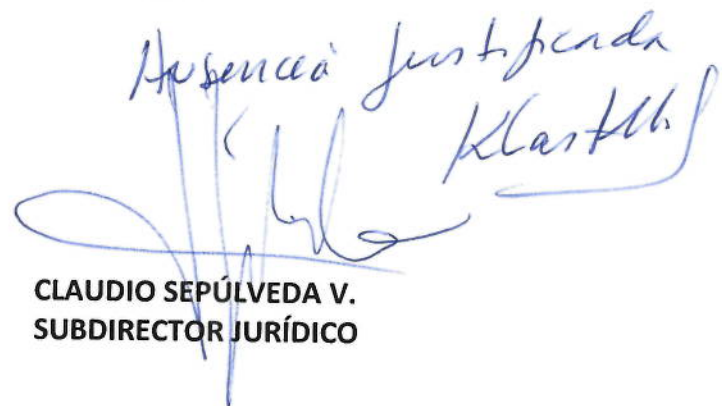 Ausencia Justificada
CLAUDIO SEPÚLVEDA V.
SUBDIRECTOR JURÍDICO